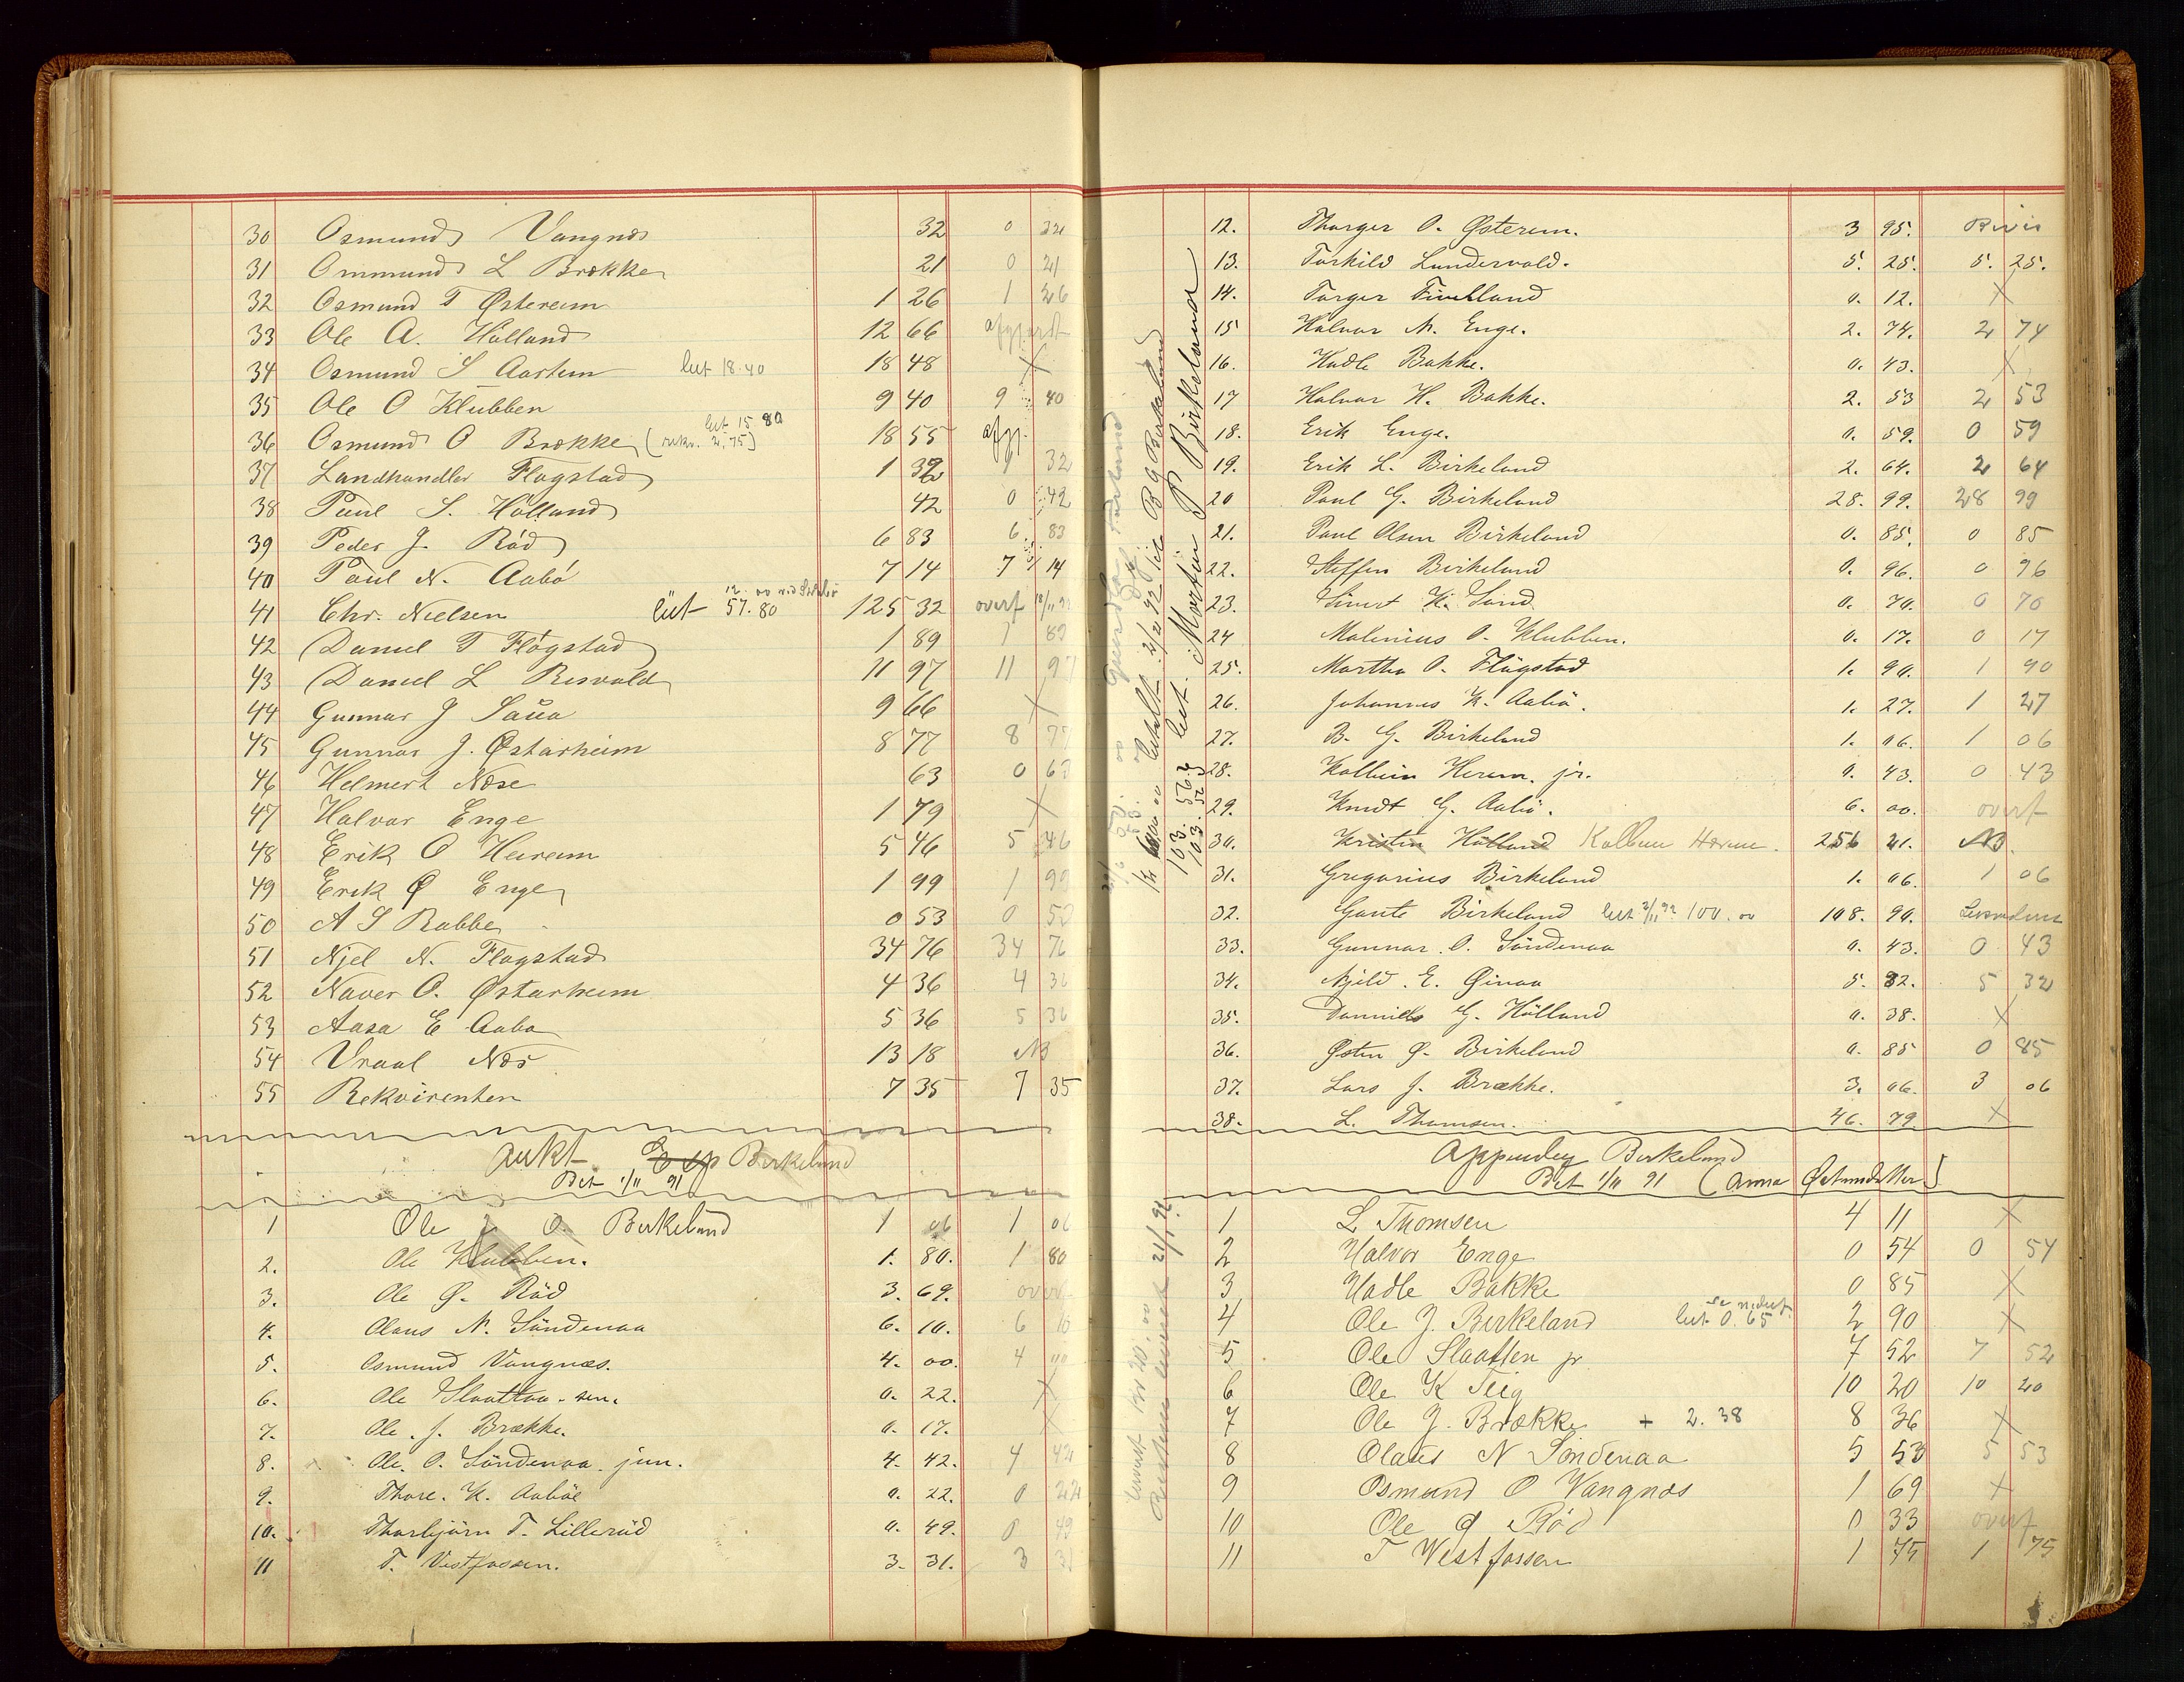 30 Osmund Vangnes 32 0 32
31 Ommund L Brække 21 0 21
32 Osmund T Østereim 1 26 1 26
33 Ole A. Hölland 12 66 afgjort
34 Osmund S Aartun let 18.40 18 48 X
35 Ole O Klubben 9 40 9 40
let 15 80
36 Osmund O Brække (rekv. 2,75) 18 55 afgj.
37 Landhandler Flogstad 1 32 1 32
38 Paul S. Hölland 42 0 42
39 Peder J. Röd 6 83 6 83
40 Paul N. Aabö 7 14 7 14
12.00
41 Chr. Nielsen let 57.80 125 32 overf 18/11 92
42 Daniel T Flögstad 1 89 1 89
43 Daniel L Risvold 11 97 11 97
44 Gunnar J Saua 9 66 X
45 Gunnar J. Østarheim 8 77 8 77
46 Helmert Næse 63 0 63
47 Halvor Enge 1 79 X
48 Erik O Heireim 5 46 5 46
49 Erik Ø Enge 1 99 1 99
50 A S Rabbe 0 53 0 53
51 Njel N. Flogstad 34 76 34 76
52 Naver O. Østarheim 4 36 4 36
53 Aasa E Aabø 5 36 5 36
54 Vraal Næs 13 18 NB
55 Rekvirenten 7 35 7 35
Aukt Birkeland
Bet 1/11 91
1 Ole J O. Birkeland 1 06 1 06
2. Ole Klubben. 1. 80. 1 80
3. Ole Ø. Röd 3. 69. overf
4. Olaus N. Söndenaa 6. 10. 6 10
5. Osmund Vangnæs. 4. 00. 4 00
6. Ole Slaattaa. sen. 0. 22. X
7. Ole. J. Brække. 0. 17. X
8. Ole. O. Söndenaa. jun. 4. 42. 4 42
9. Thore. K. Aaböe 0. 22. 0 22
10. Thorbjörn T. Lilleröd 0. 49. 0 49
11 T. Vestfossen. 3. 31. 3 31
let. Martin P Birkeland
B G Birkeland
103. 56
103. 52
12. Thorger O. Østereim. 3 95.
13. Torkild Lundervold. 5. 25. 5. 25.
14. Torger Fivelland 0. 12. X
15 Halvor N. Enge. 2. 74. 2 74
16. Hadle Bakke. 0. 43. X
17 Halvor H. Bakke. 2. 53 2 53
18. Erik Enge. 0. 59. 0 59
19. Erik L. Birkeland 2. 64. 2 64
20 Paul G. Birkeland 28. 99. 28 99
21. Paul Olsen Birkeland 0. 85. 0 85
22. Steffen Birkeland 0. 96. 0 96
23. Sivert K. Sand 0. 70. 0 70
24 Malenius O. Klubben. 0. 17. 0 17
25. Martha O. Flögstad 1. 90. 1 90
26. Johannes K. Aabö. 1. 27. 1 27
27. B. G. Birkeland 1. 06. 1 06
28. Kolbein Hereim. jr. 0. 43. 0 43
29. Knudt G. Aabö. 6. 00. overf
30. Kristin Hölland Kolbein Hereim. 256 21. NB.
31. Gregorius Birkeland 1. 06. 1 06
32. Gaute Birkeland let 3/11 92 100.00 108. 90.
33. Gunnar. O. Söndenaa 0. 43. 0 43
34. Njeld. E. Øinaa 5. 32. 5 32
35. Daniel G. Hölland 0. 38. X
36. Østen Ø. Birkeland 0. 85 0 85
37. Lars J. Brække. 3. 06. 3 06
38. L. Thomsen. 46. 79. X
Birkeland
Bet 1/11 91 (Anna Østensdatter)
1 L Thomsen 4 11 X
2 Halvor Enge 0 54 0 54
3 Hadle Bakke 0 85 X
4 Ole J. Birkeland let 0.65 2 90 X
5 Ole Slaatten jr 7 52 7 52
6 Ole K Teig 10 20 10 20
7 Ole J. Brække + 2.38 8 36 X
8 Olaus N Söndenaa 5 53 5 53
9 Osmund O Vangnæs 1 69 X
10 Ole Ø Röd 0 33 overf
11 T Westfossen 1 75 1 75